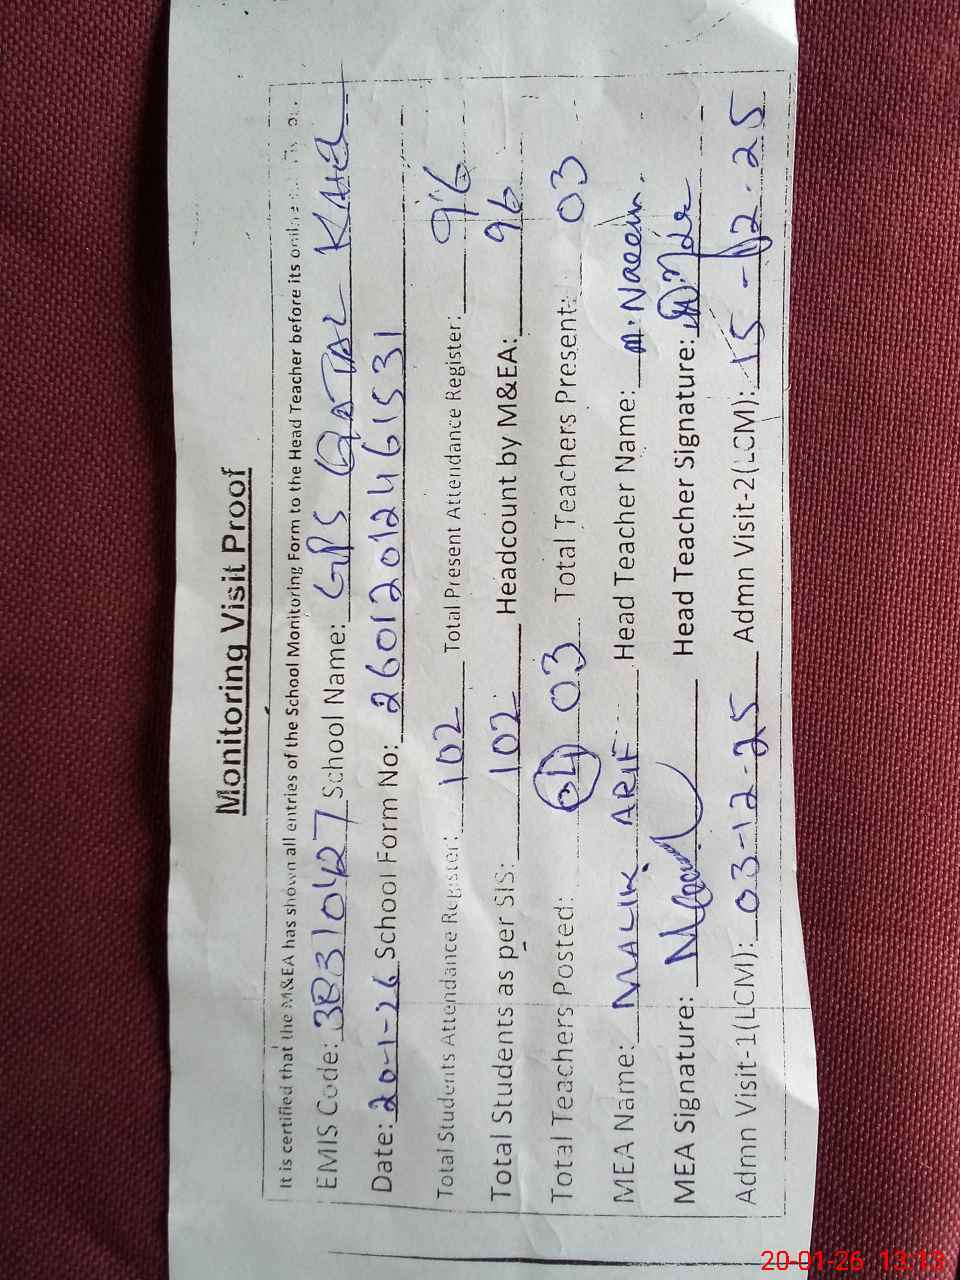 Monitoring Visit Proof
It is certified that the M&EA has shown all entries of the School Monitoring Form to the Head Teacher before its
EMIS Code: 38310427 School Name: GPS QATAL KAHG
Date: 20-1-26 School Form No: 26012012461531
Total Students Attendance Register: 102 Total Present Attendance Register: 96
Total Students as per SIS: 102 Headcount by M&EA: 96
Total Teachers Posted: 04 03 Total Teachers Present: 03
MEA Name: MALIK ARIF Head Teacher Name: M. Naeem.
MEA Signature: Head Teacher Signature:
Admn Visit-1(LCM): 03-12-25 Admn Visit-2(LCM): 15-12-25
20-01-26 13:13